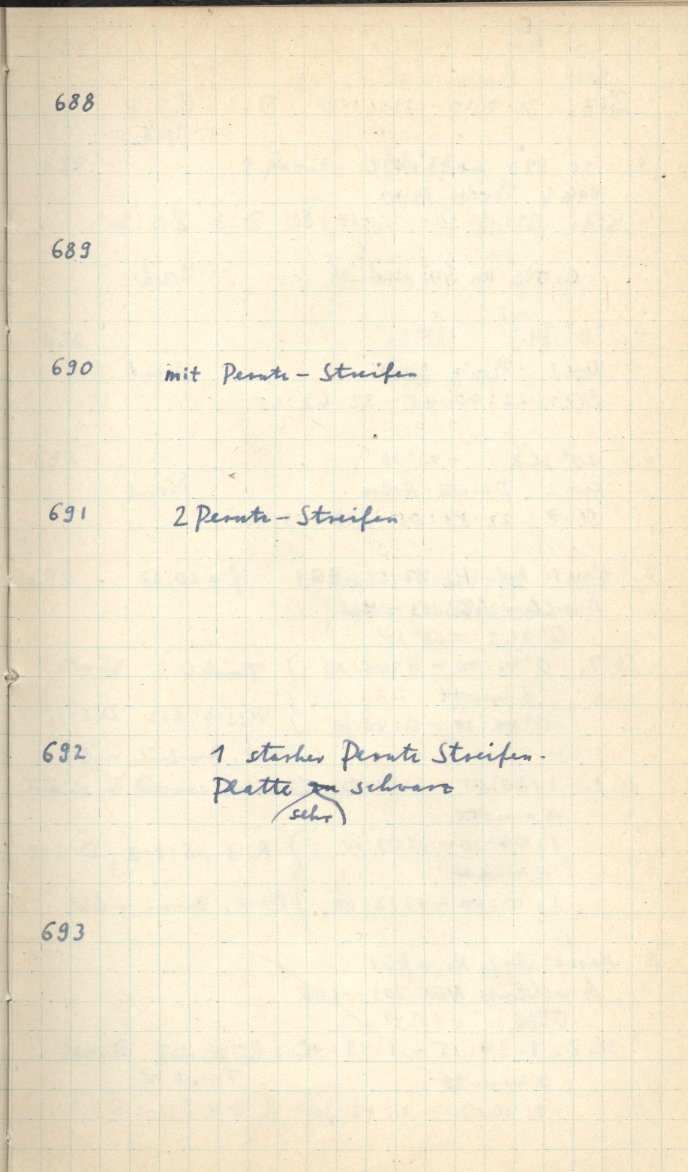 688
689
690 mit Perutz-Streifen
691 2 Perutz-Streifen
692 1 starker Perutz Streifen.
Platte zu schwarz
(sehr)
693